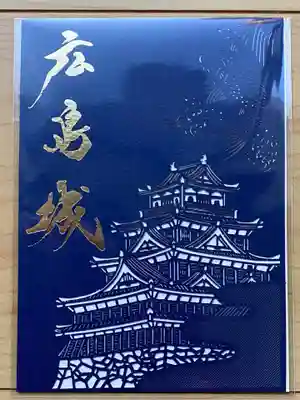 広島城